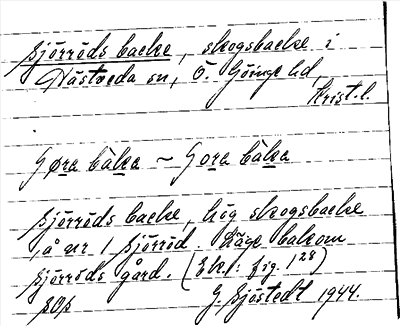 Sjöröds backe, skogsbacke i
Hästveda sn, Ö. Göinge hd,
Krist. l.
Gøra bàka ~ Gora bàka
Sjöröds backe, hög skogsbacke
å nr 1 Sjöröd. Läge bakom
Sjöröds gård. (Ekf: fig. 128)
SOS G Sjöstedt 1944.